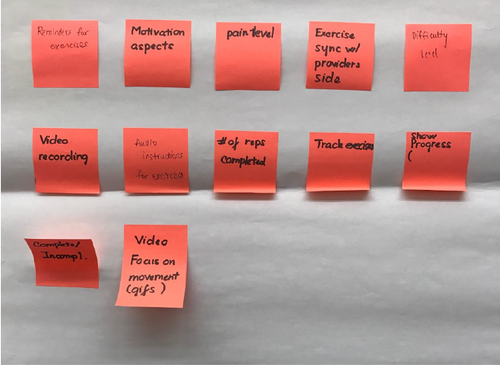 Reminders for
exercises
Motivation
aspects
pain level
Exercise
sync w/
providers
side
Difficulty
level
Video
recording
Audio
instructions
for exercises
# of reps
completed
Track exercises
Show
Progress
(
Complete/
Incompl.
Video
Focus on
movement
(gifs)